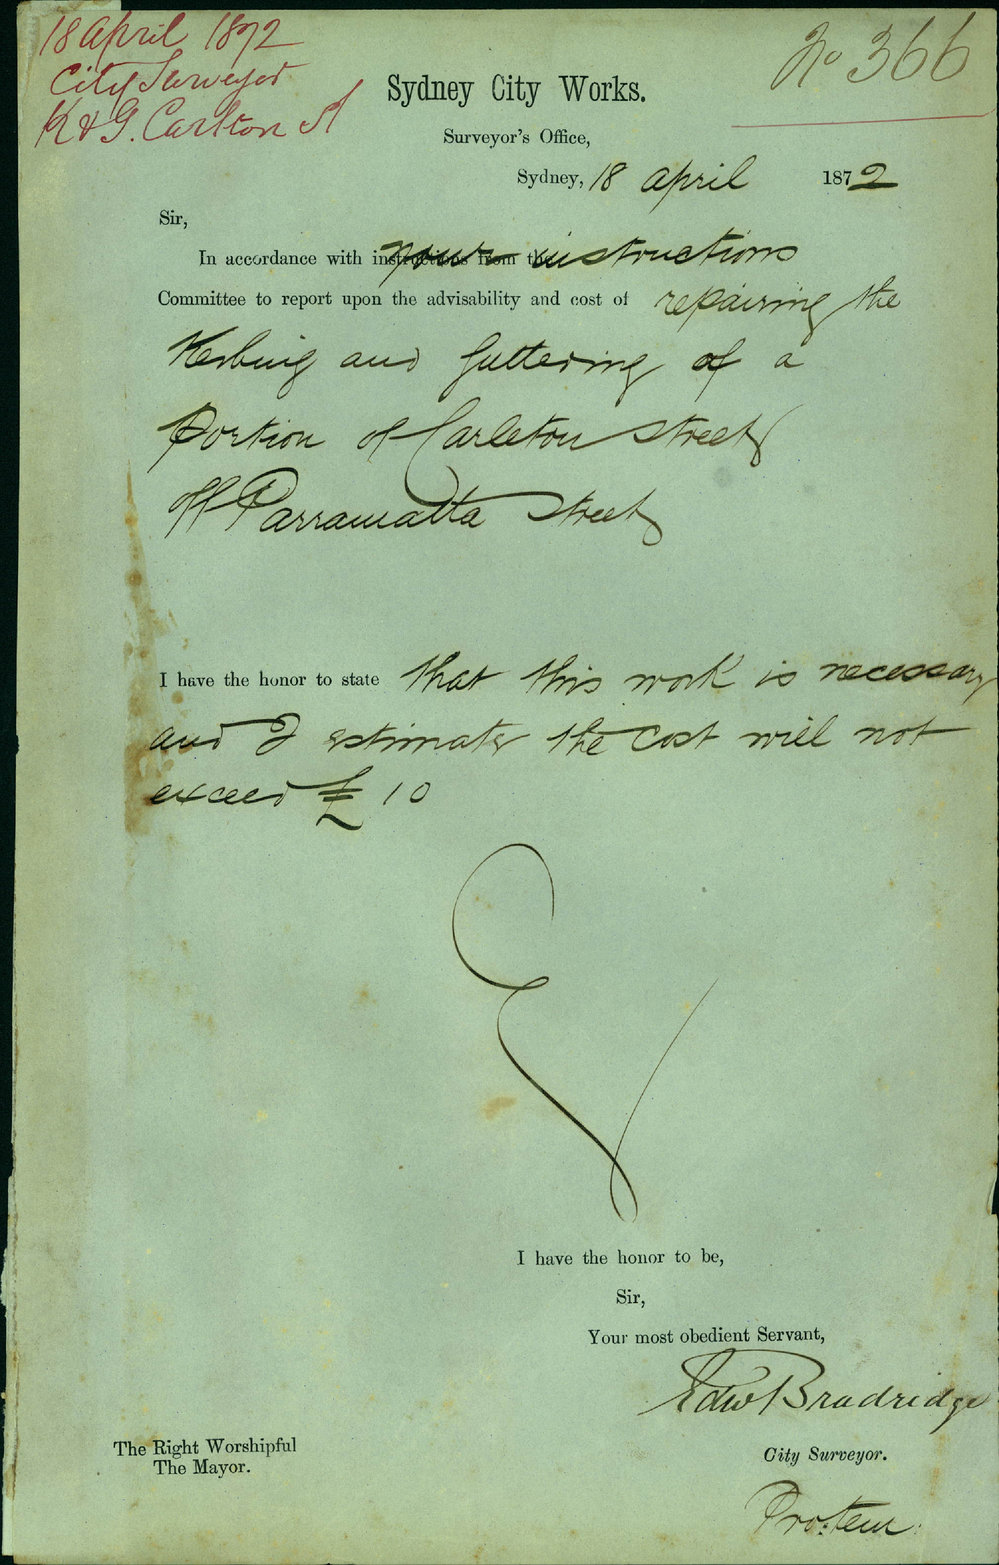 18 April 1872
City Surveyor
K & G. Carlton St
No 366
Sydney City Works.
Surveyor's Office,
Sydney, 18 April 1872
Sir,
In accordance with instructions from the your instructions
Committee to report upon the advisability and cost of repairing the
Kerbing and guttering of a
Portion of Carleton Street
off Parramatta Street
I have the honor to state that this work is necessary
and I estimate the cost will not
exceed £ 10
I have the honor to be,
Sir,
Your most obedient Servant,
Edw Bradridge
The Right Worshipful
The Mayor.
City Surveyor.
Pro: tem